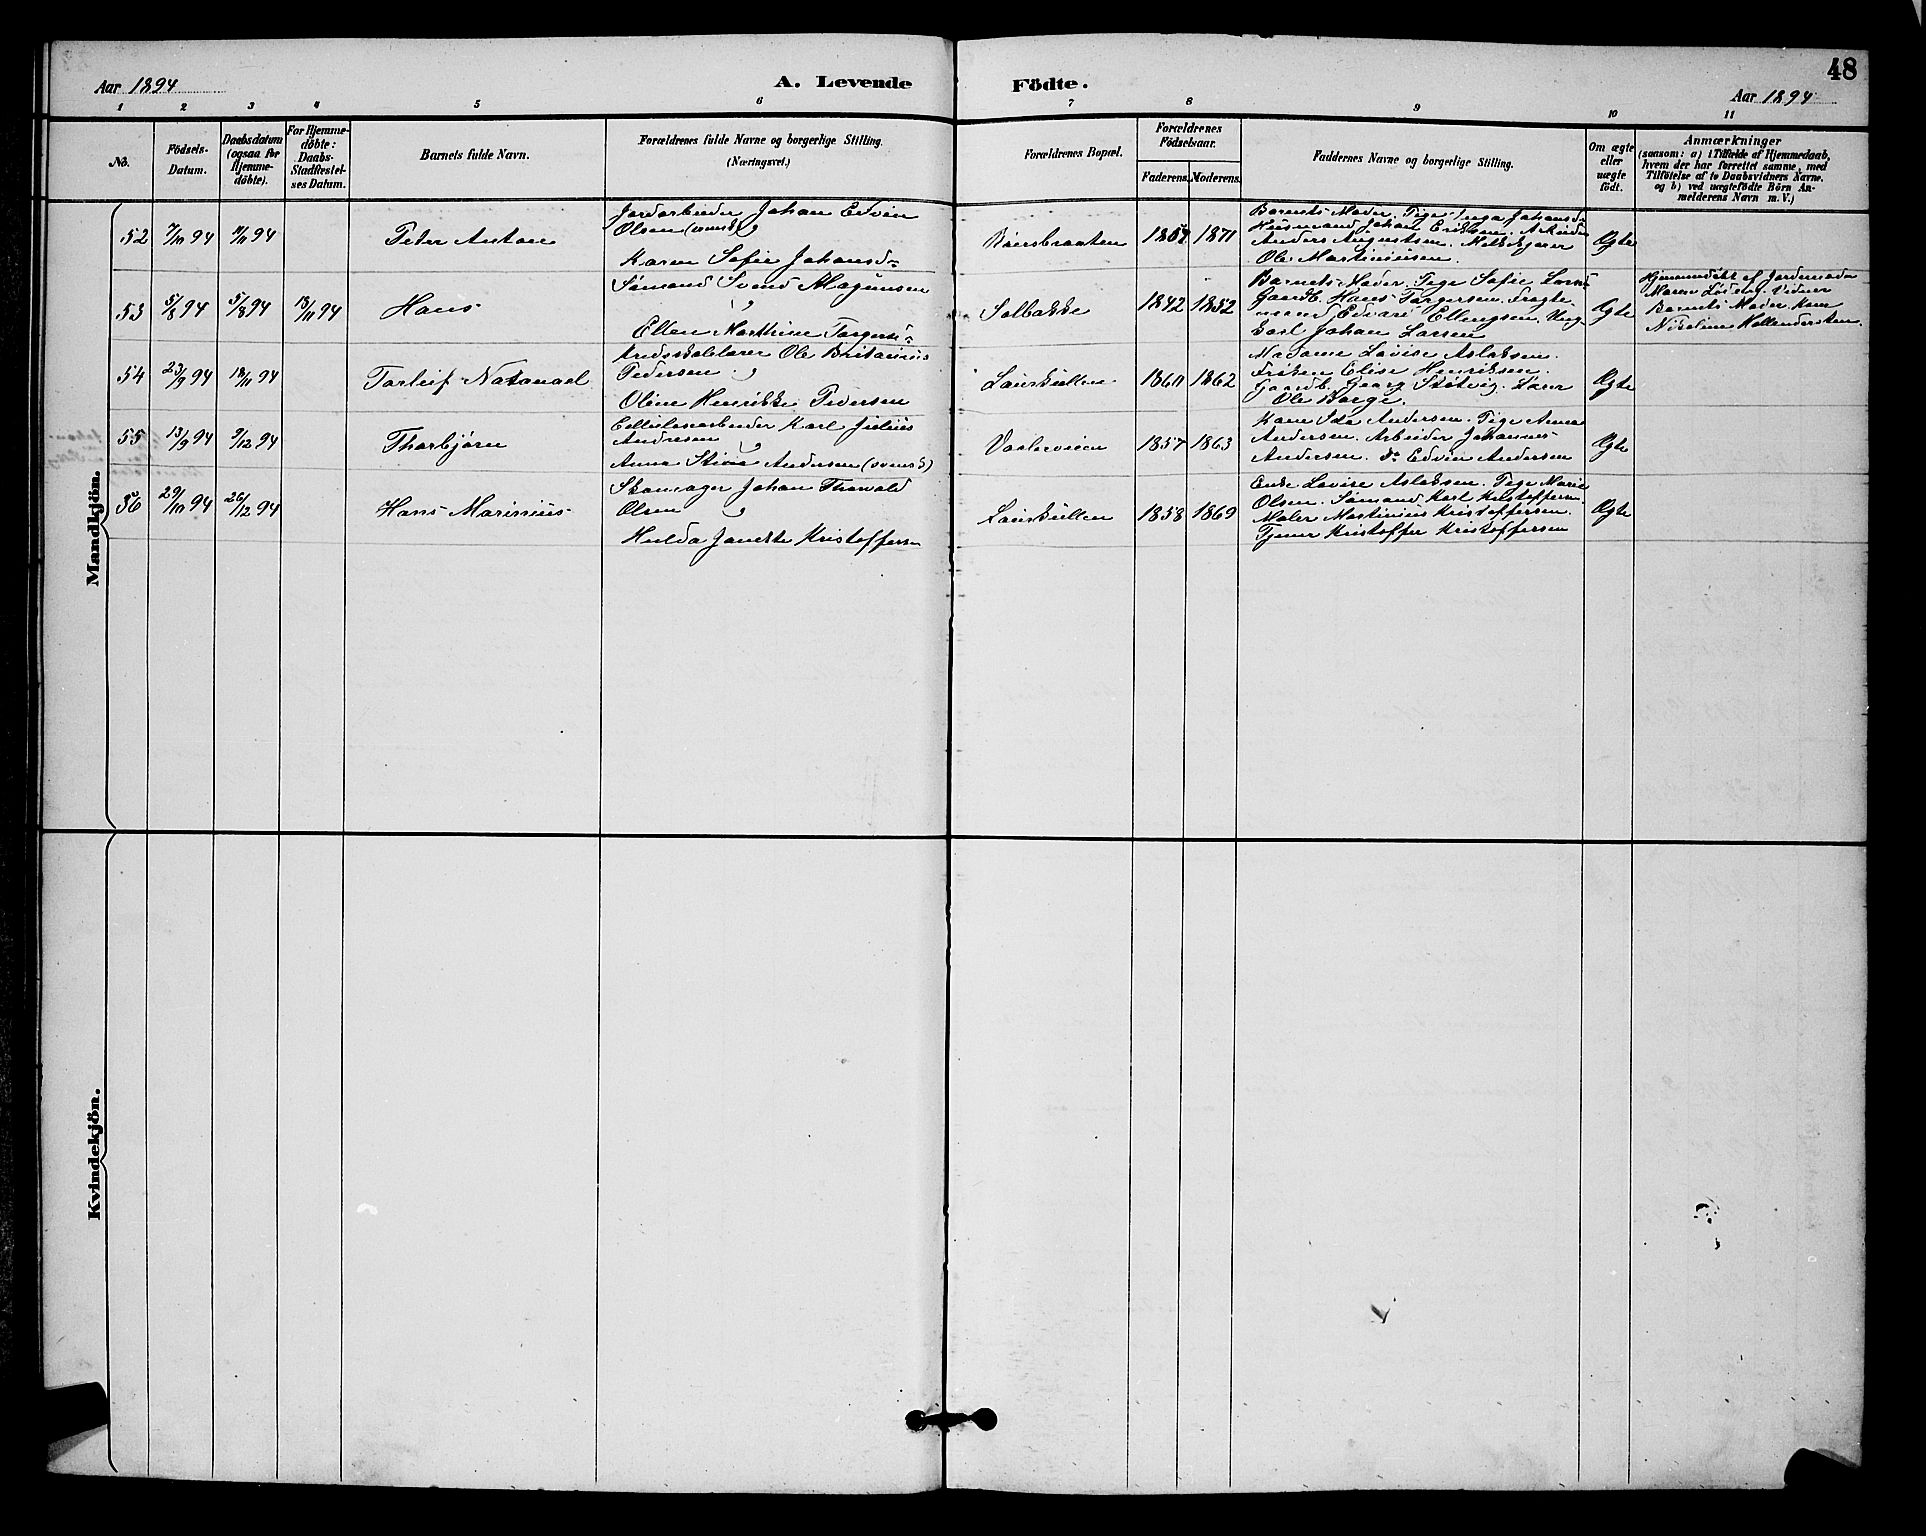 48
Aar 1894
A. Levende
Födte.
Aar 1894
1 2 3 4 5 6 7 8 9 10 11
No.
Födsels-
Datum.
Daabsdatum
(ogsaa for
Hjemme-
döbte).
For Hjemme-
döbte:
Daabs-
Stadfæstel-
ses Datum.
Barnets fulde Navn.
Forældrenes fulde Navne og borgerlige Stilling.
(Næringsvei.)
Forældrenes Bopæl.
Forældrenes
Födselsaar.
Faderens. Moderens.
Faddernes Navne og borgerlige Stilling.
Om ægte
eller
uægte
födt.
Anmærkninger
(saasom: a) i Tilfælde af Hjemmedaab,
hvem der har forrettet samme, med
Tilföielse af to Daabsvidners Navne,
og b) ved uægtefödte Börn An-
melderens Navn m. V.)
Mandkjön.
52 7/10 94 11/11 94
Peter Anton
Jordarbeider Johan Edvin
Olsen (svensk)
Karen Sofie Johansd=
1871
Barnets Moder. Pige Inga Johansd=
Husmand Johan Eriksen. Arbeider
Anders Augustsen. Melkekjører
Ole Martiniusen.
Ægte
53 5/8 94 5/8 94 18/11 94
Hans
Sømand Svend Magnusen
Ellen Marthine Torgers=
Solbakke
1842 1852
Barnets Moder. Pige Sofie Lorens=
Gaardb. Hans Torgersen. Fragte-
mand Edvard Ellingsen. Ung.
Carl Johan Larsen
Ægte
Hjemmedøbt af Jordemoder
Maren Vidner
Barnets Moder. Kone
Nikoline Hollendersken.
54 23/9 94 18/11 94
Torleif Natanael
Kredsskolelærer Ole Britanius
Pedersen
Oline Henrikke Pedersen
Lauerskullen
1860 1862
Madame Lovise Aslaksen.
Frøken Elise Henriksen.
Gaardb. Georg Støtvig. Lærer
Ole Borge.
Ægte
55 13/9 94 9/12 94
Thorbjørn
Cellulosearbeider Karl Julius
Andresen
Anna Stina Andersen (svensk)
Vaaleveien
1857 1863
Kone Ida Andersen. Pige Anna
Andersen. Arbeider Johannes
Andersen. do Edvin Andersen
Ægte
56 29/10 94 26/12 94
Hans Marinius
Skomager Johan Thorvald
Olsen
Hulda Janette Kristoffersen
Lauerskullen
1858 1869
Enke Lovise Aslaksen. Pige Marie
Olsen. Sømand Karl Kristoffersen.
Maler Martinius Kristoffersen.
Tjener Kristoffer Kristoffersen
Ægte
Kvindekjön.